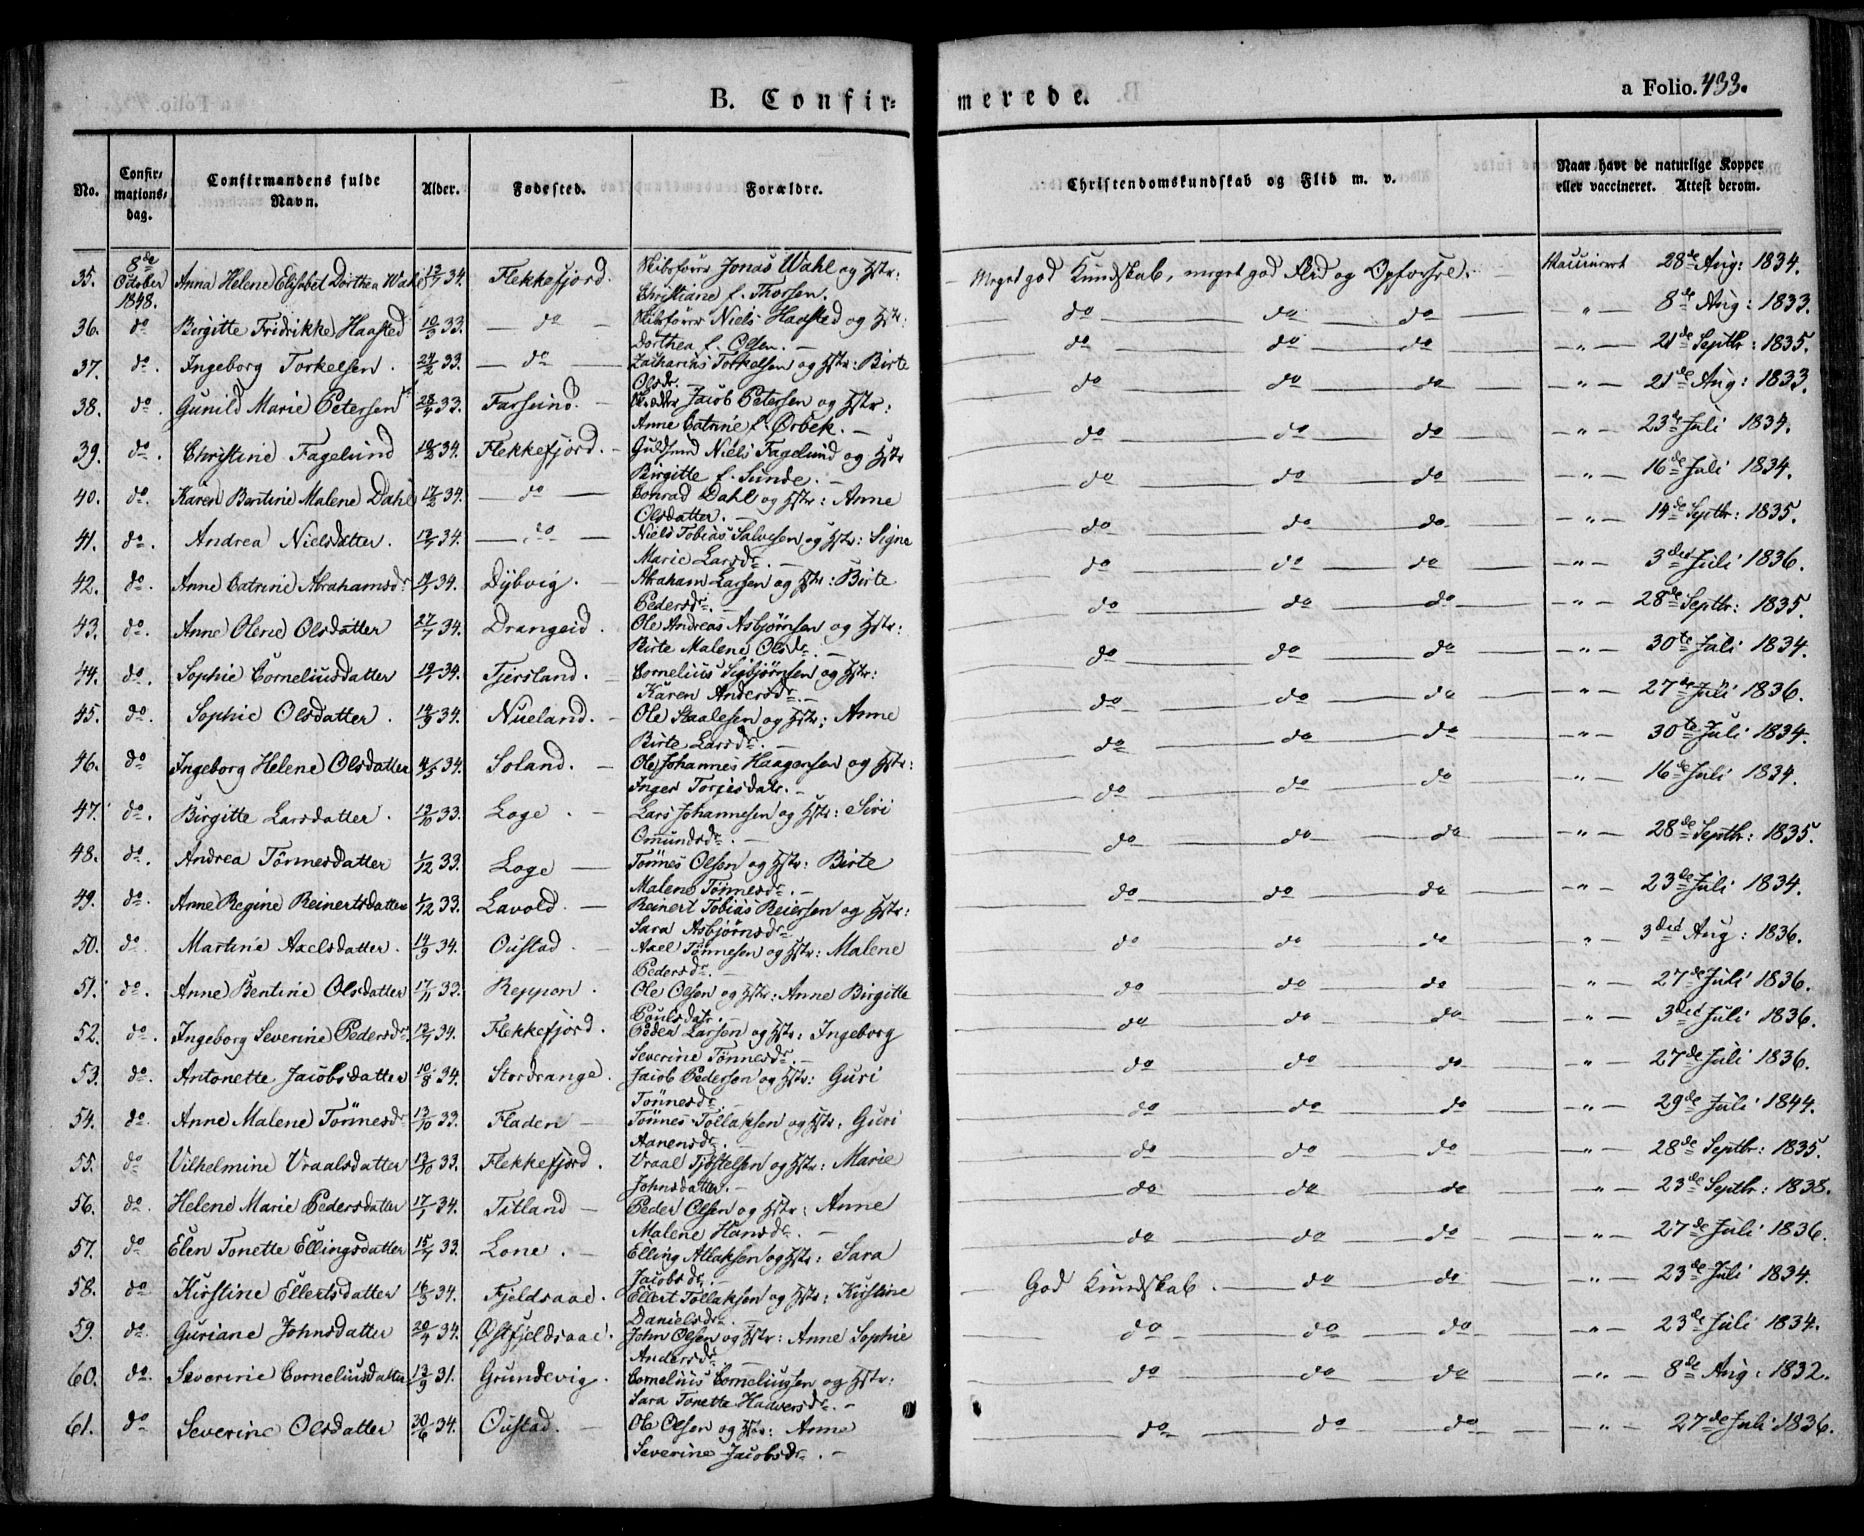 B. Confir-
merede.
a Folio. 433.
No.
Confir-
mations-
dag.
Confirmandens fulde
Navn.
Alder.
Fødested.
Forældre.
Christendomskundskab og Flid m. v.
Naar havt de naturlige Kopper
eller vaccineret. Attest derom.
35. 8de October 1848. Anna Helene Elisbet Dorthea Wahl 34. Flekkefjord. Skibsfører Jonas Wahl og Hstr: Christiane f. Thorsen. Meget god Kundskab, meget god Flid og Opførsel. Vaccineret 28de Aug: 1834.
36. do Birgitte Fridrikke Haasted 10/3 33. do Skibsfører Niels Haasted og Hstr: Dorthea f. Olsen. do do do " 8de Aug: 1833.
37. do. Ingeborg Torkelsen. 24/2 33. do Zacharias Torkelsen og Hstr: Birte Olsdr. do do do " 21de Septbr: 1835.
38. do. Gunild Marie Petersen 28/4 33. Farsund. Jacob Petersen og Hstr: Anne Catrine f. Ørbek. do do do " 21de Aug: 1833.
39. do. Christine Fagelund 34. Flekkefjord. Guldsmed Niels Fagelund og Hstr Birgitte f. Sunde. do do do " 23de Juli 1834.
40. do. Karen Bentine Malene Dahl 34. do Conrad Dahl og Hstr: Anne Olsdatter. do do do " 16de Juli 1834.
41. do. Andrea Nielsdatter. 34. do Niels Tobias Salvesen og Hstr: Signe Marie Larsdr. do do do " 14de Septbr: 1835.
42. do. Anne Catrine Abrahamsdr 34. Dybvig. Abraham Larsen og Hstr: Birte Pedersdr. do do do " 3died Juli 1836.
43. do. Anne Olene Olsdatter 27/7 34. Drangeid. Ole Andreas Asbjørnsen og Hstr: Birte Malene Olsdr. do do do " 28de Septbr: 1835
44. do. Sophie Corneliusdatter 34. Tjersland. Cornelius Sigbjørnsen og Hstr: Karen Andersdr. do do do " 30te Juli 1834.
45. do. Sophie Olsdatter. 14/3 34. Nueland. Ole Staalesen og Hstr: Anne Birte Larsdr. do do do " 27de Juli 1836.
46. do Ingeborg Helene Olsdatter 34. Soland. Ole Johannes Haagensen og Hstr: Inger Torjesdatr. do do do " 30te Juli 1834.
47. do. Birgitte Larsdatter. 12/10 33. Loge. Lars Johannesen og Hstr: Siri Omundsdr. do do do " 16de Juli 1834.
48. do. Andrea Tönnesdatter 1/12 33. Loge Tönnes Olsen og Hstr: Birte Malene Tönnesdr. do do do " 28de Septbr: 1835.
49. do. Anne Regine Reinertsdatter 1/12 33. Lavold. Reinert Tobias Reiersen og Hstr: Sara Asbjørnsdr. do do do " 23de Juli 1834.
50. do. Martine Axelsdatter. 14/3 34. Oustad. Axel Tönnesen og Hstr: Malene Pedersdr. do do do " 3died Aug: 1836.
51. do. Anne Bentine Olsdatter 17/11 33. Reppon. Ole Olsen og Hstr: Anne Birgitte Poulsdatr. do do do " 27de Juli 1836.
52. do. Ingeborg Severine Pedersdr 34. Flekkefjord. Peder Larsen og Hstr: Ingeborg Severine Tönnesdr. do do do " 3died Juli 1836.
53. do. Antonette Jacobsdatter 10/8 34. Stordrange. Jacob Pedersen og Hstr: Guri Tönnesdr. do do do " 27de Juli 1836.
54. do. Anne Malene Tönnesdr 13/10 33. Fladen Tönnes Tollaksen og Hstr: Guri Aanensdr. do do do " 29de Juli 1844.
55. do Vilhelmine Vraalsdatter 13/10 33. Flekkefjord. Vraal Tjøstelsen og Hstr: Marie Johnsdatter. do do do " 28de Septbr: 1835.
56. do. Helene Marie Pedersdatter 17/1 34. Titland Peder Olsen og Hstr: Anne Malene Hansdr. do do do " 23de Septbr: 1838.
57. do Elen Tonette Ellingsdatter 33. Lone. Elling Atlaksen og Hstr: Sara Jacobsdr. do do do " 27de Juli 1836.
58. do Kirstine Ellertsdatter 16/3 34. Fjeldsaae. Ellert Tollaksen og Hstr: Kirstine Danielsdr. God Kundskab. do do " 23de Juli 1834.
59. do. Guriane Johnsdatter 20/4 34. Østfjeldsaae. John Olsen og Hstr: Anne Sophie Andersdr. do do do " 23de Juli 1834.
60. do. Severine Corneliusdatter 13/9 31. Grundevig. Cornelius Corneliussen og Hstr: Sara Tonette Hadversdr. do do do " 8de Aug: 1832.
61. do Severine Olsdatter 30/6 34. Oustad. Ole Olsen og Hstr: Anne Severine Jacobsdr. do do do " 27de Juli 1836.